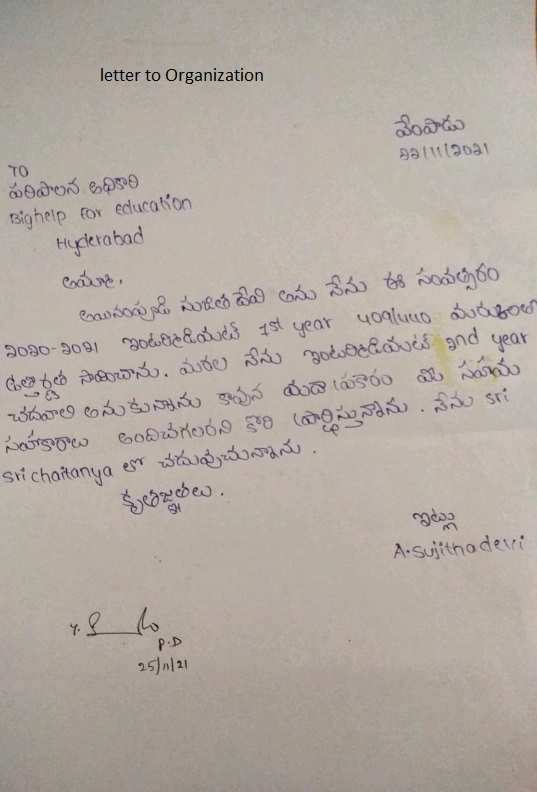 letter to Organization
వేంపాడు
22/11/2021
TO
పరిపాలన అధికారి
Bighelp for education
Hyderabad
అమ్మా,
అయినంపూడి సుజితదేవి అను నేను ఈ సంవత్సరం
2020-2021 ఇంటర్మీడియట్ 1st year 409/440 మార్కులతో
ఉత్తీర్ణత సాధించాను. మరల నేను ఇంటర్మీడియట్ 2nd year
చదవాలి అనుకున్నాను కావున యదాప్రకారం మీ సహాయ
సహకారాలు అందించగలరని కోరి ప్రార్థిస్తున్నాను. నేను sri
sri chaitanya లో చదువుచున్నాను.
కృతజ్ఞతలు.
ఇట్లు
A.Sujithadevi
P.D
25/11/21